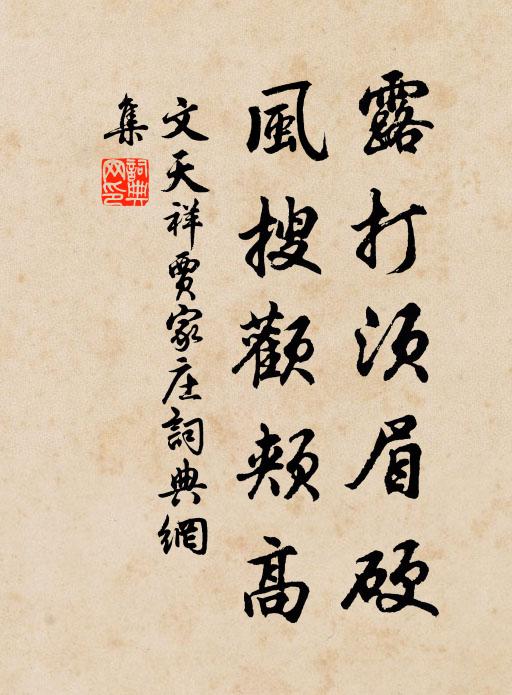 露打須眉硬
風搜顴頰高
文天祥賈家庄詞典網
集
詞典
网印